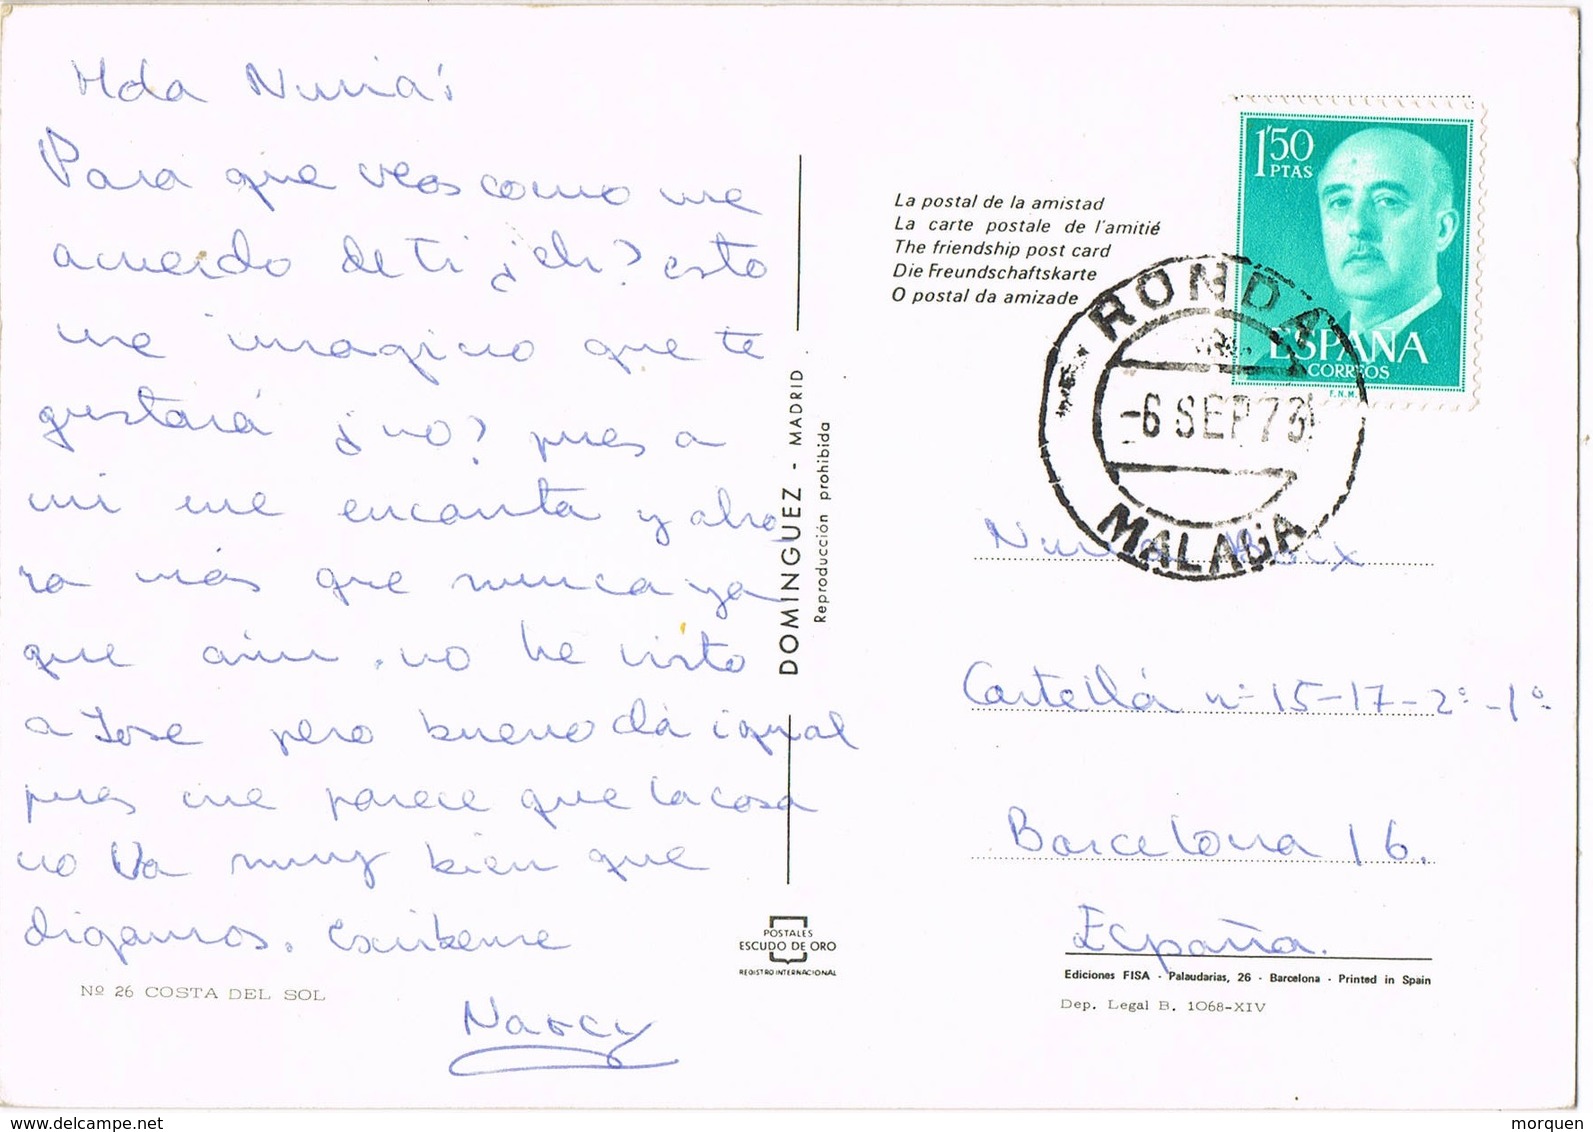 Hola Nuria:
Para que veas como me
acuerdo de ti ¿eh? esto
me imagino que te
gustará ¿no? pues a
mi me encanta y aho
ra más que nunca ya
que aún no he visto
a Jose pero bueno dá igual
pues me parece que la cosa
no va muy bien que
digamos. Escribeme
Narcy
Nº 26 COSTA DEL SOL
DOMINGUEZ - MADRID
Reproducción prohibida
POSTALES
ESCUDO DE ORO
REGISTRO INTERNACIONAL
La postal de la amistad
La carte postale de l'amitié
The friendship post card
Die Freundschaftskarte
O postal da amizade
1'50
PTAS
ESPAÑA
CORREOS
F.N.M.
RONDA
-6 SEP 73
MALAGA
Nuria Boix
Cartellá nº 15-17-2º-1º
Barcelona 16.
España.
Ediciones FISA - Palaudarias, 26 - Barcelona - Printed in Spain
Dep. Legal B. 1068-XIV
www.delcampe.net
morquen